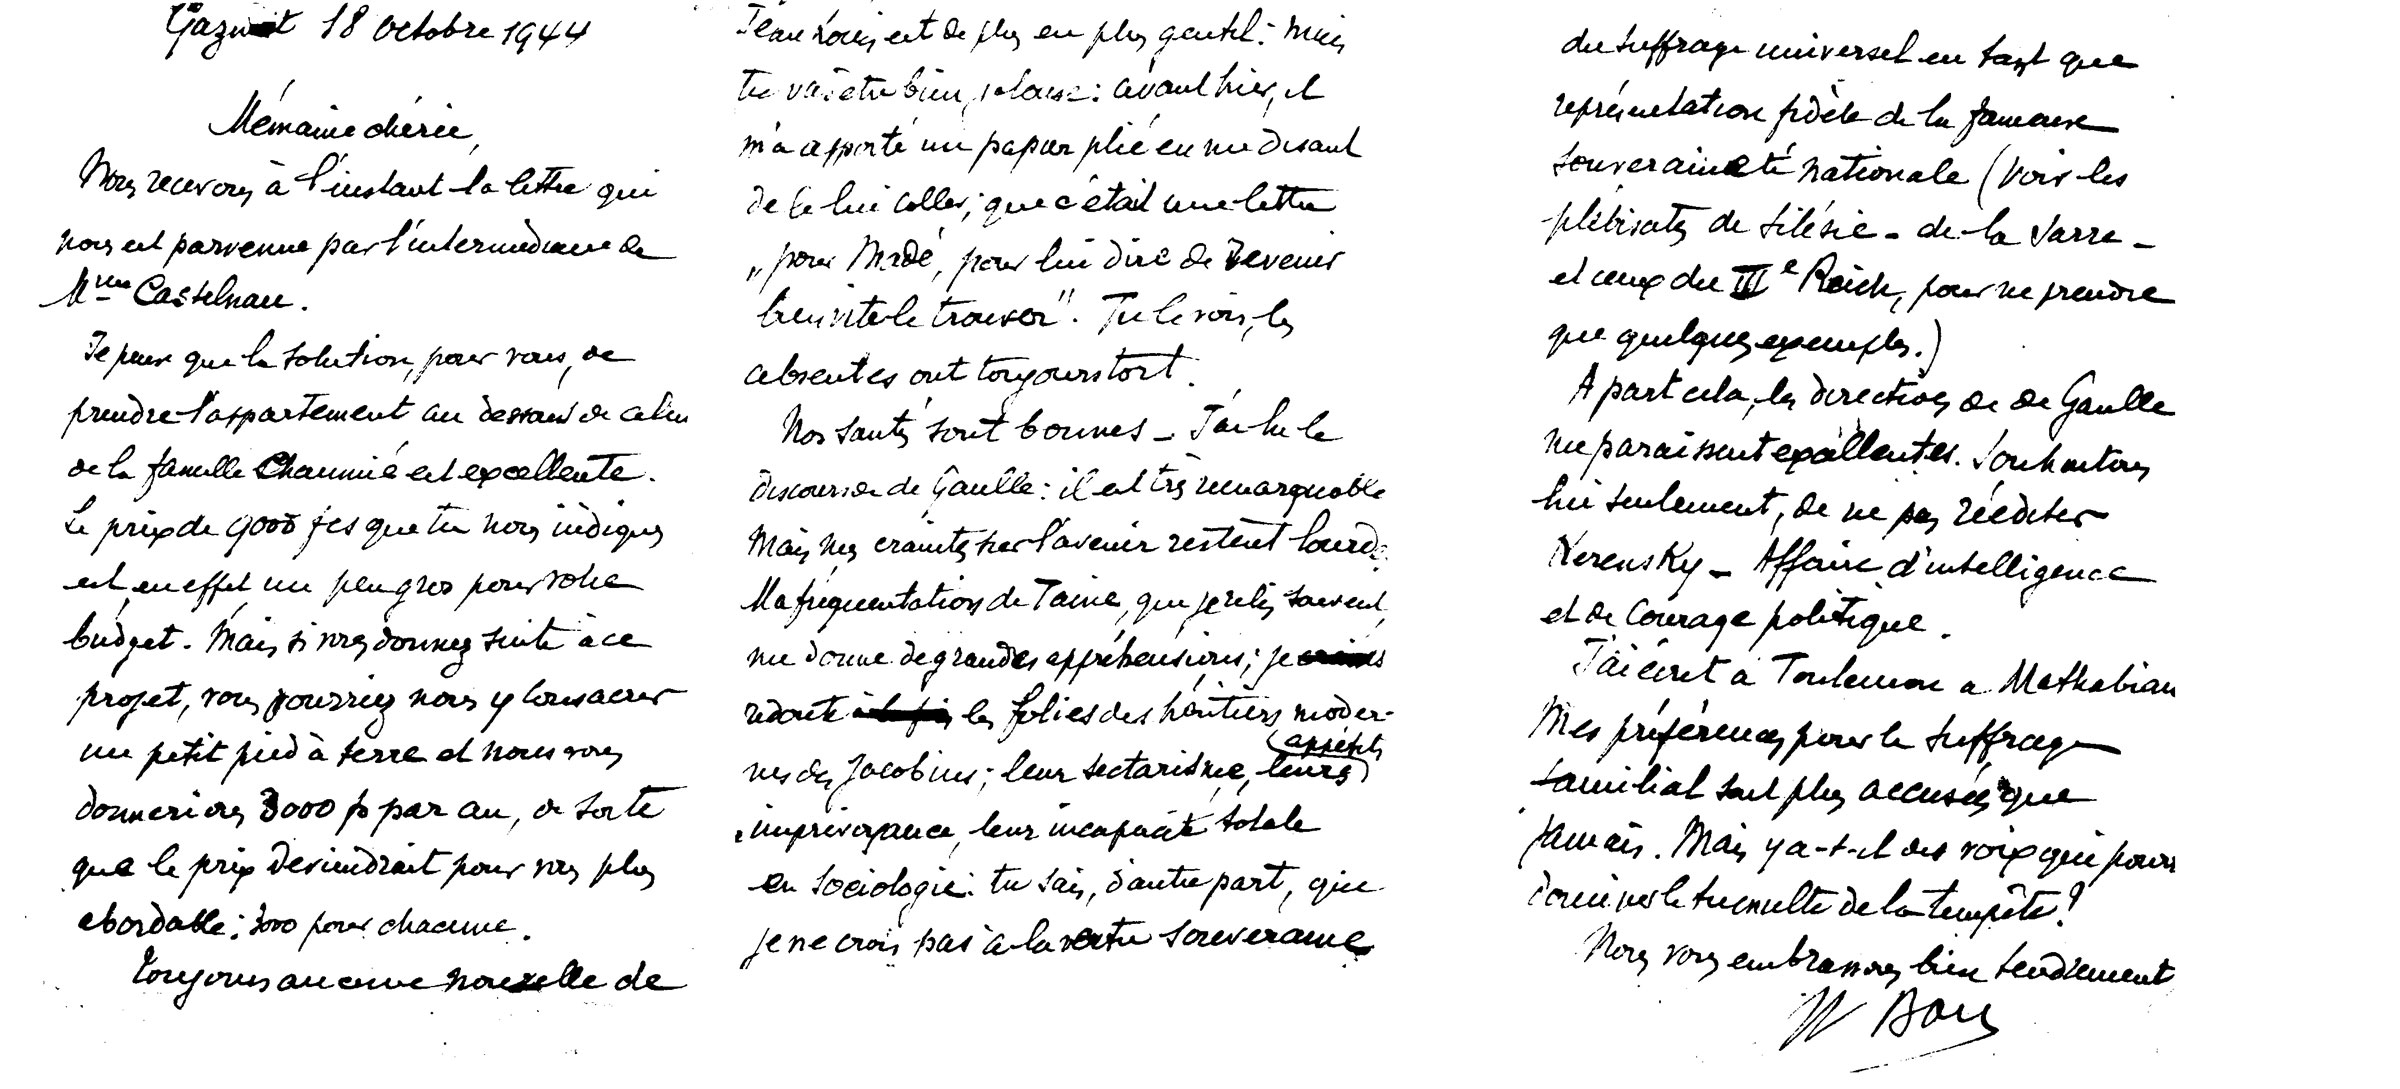 Gaznet 18 octobre 1944
Mémaine chérie,
Nous recevons à l'instant la lettre qui
nous est parvenue par l'intermédiaire de
Mme Castelnau.
Je pense que la solution, pour vous, de
prendre l'appartement au dessous de celui
de la famille Chaumié est excellente.
Le prix de 9000 frs que tu nous indiques
est en effet un peu gros pour votre
budget. Mais si vous donnez suite à ce
projet, vous pourriez nous y consacrer
un petit pied à terre et nous vous
donnerions 3000 f par an, de sorte
que le prix deviendrait pour vous plus
abordable : 3000 pour chacune.
Toujours aucune nouvelle de
Jean Louis est de plus en plus gentil : mais
tu vas être bien jalouse : avant hier, il
m'a apporté un papier plié en me disant
de le lui coller ; que c'était une lettre
"pour Madé, pour lui dire de revenir
bien vite le trouver". Tu le vois, les
absentes ont toujours tort.
Nos santés sont bonnes – J'ai lu le
discours de de Gaulle : il est très remarquable
Mais mes craintes sur l'avenir restent lourdes
Ma fréquentation de Taine, que je relis souvent,
me donne de grandes appréhensions ; je crains
redoute les folies des héritiers moder-
nes des Jacobins ; leur sectarisme, leurs appétits
imprévoyance, leur incapacité totale
en sociologie : tu sais, d'autre part, que
je ne crois pas à la vertu souveraine
du suffrage universel en tant que
représentation fidèle de la fameuse
souveraineté nationale (voir les
plébiscites de Silésie – de la Sarre –
et ceux du IIIe Reich, pour ne prendre
que quelques exemples.)
A part cela, les directives de de Gaulle
me paraissent excellentes. Souhaitons
lui seulement, de ne pas rééditer
Kerensky – Affaire d'intelligence
et de courage politique.
J'ai écrit à Toulemon a Mathabiau
Mes préférences pour le suffrage
familial sont plus accusées que
jamais. Mais y a-t-il des voix qui pourr
dominer le tumulte de la tempête ?
Nous vous embrassons bien tendrement